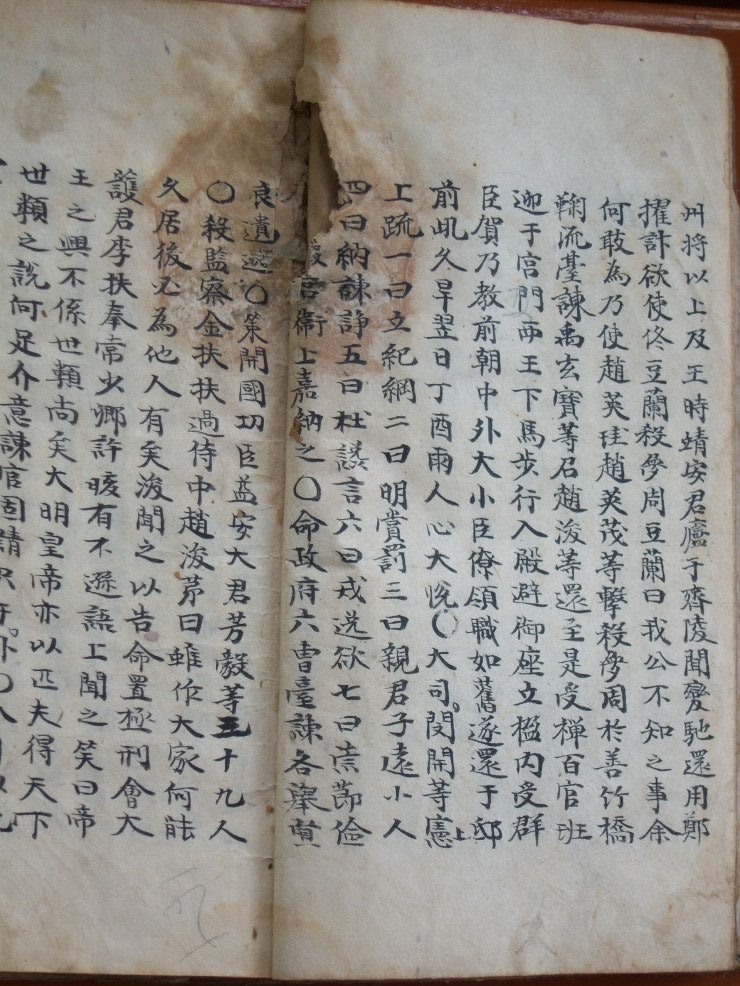 州将以上及王時靖安君廬于齊陵聞變馳還用鄭
擢計欲使佟豆蘭殺夢周豆蘭曰我公不知之事余
何敢為乃使趙英珪趙英茂等擊殺夢周於善竹橋
鞠流臺諫禹玄寶等召趙浚等還至是受禅百官班
迎于宮門西王下馬步行入殿避御座立楹内受群
臣賀乃教前朝中外大小臣僚領職如舊遂還于邸
前此久旱翌日丁酉雨人心大悅〇大司閔開等憲
上疏一曰立紀綱二曰明賞罰三曰親君子遠小人
四曰納諫諍五曰杜讒言六曰戒逸欲七曰崇節儉
宮衛上嘉納之〇命政府六曹臺諫各舉賢
良遺逸〇策開國功臣益安大君芳毅等三十九人
〇殺監察金扶扶過侍中趙浚茅曰雖作大家何能
久居後必為他人有矣浚聞之以告命置極刑會大
護君李扶奉常少卿許晐有不遜語上聞之笑曰帝
王之興不係世類尚矣大明皇帝亦以匹夫得天下
世類之說何足介意諫官固請